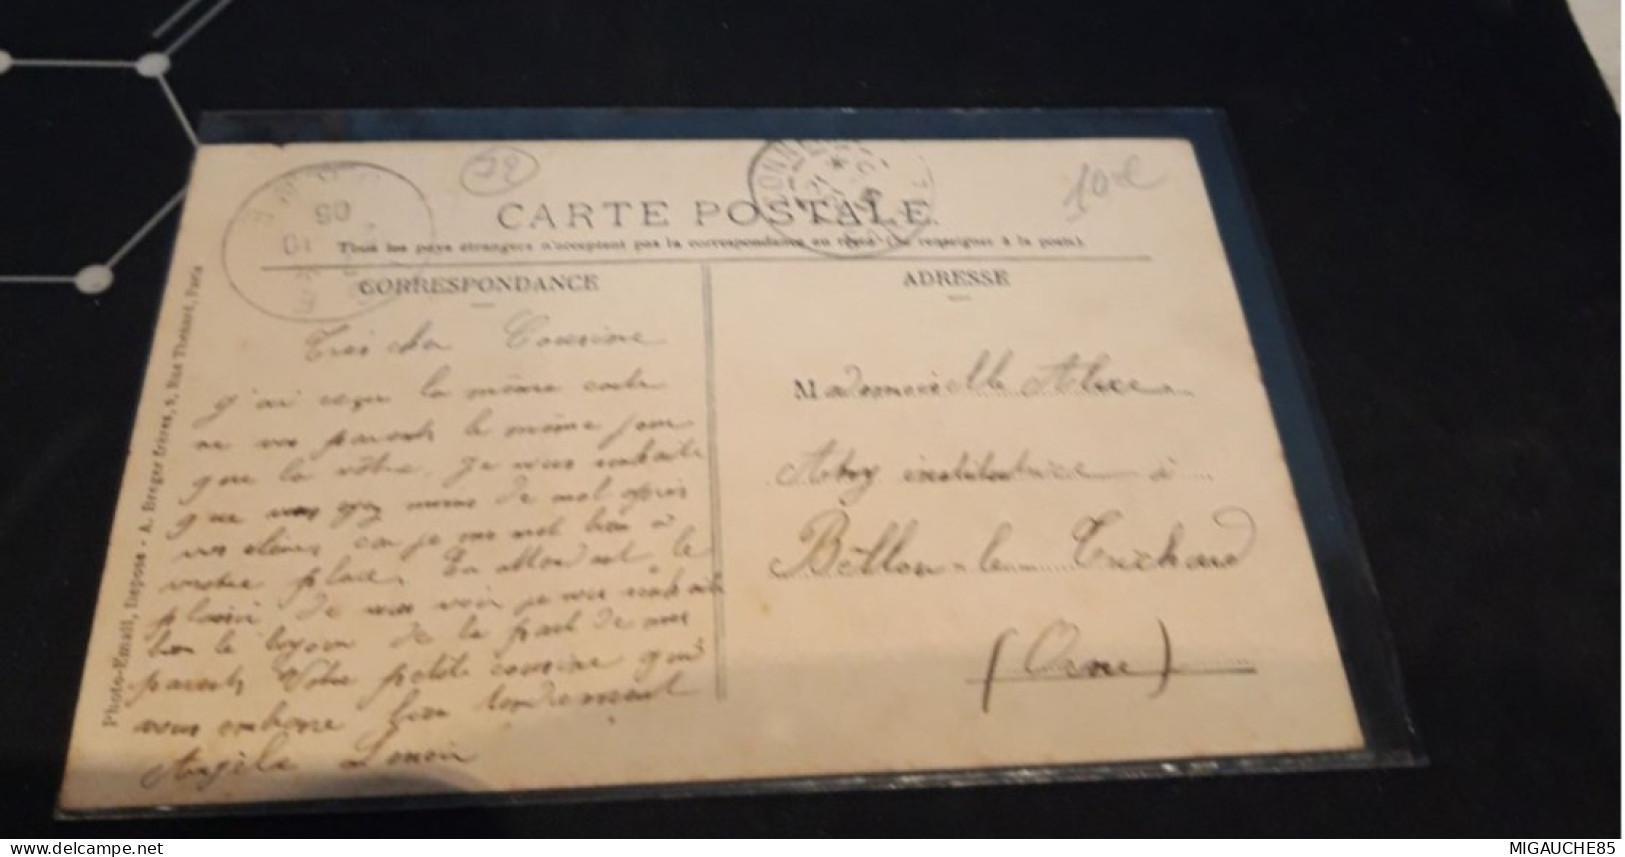 22
10 €
CARTE POSTALE
Tous les pays étrangers n'acceptent pas la correspondance au recto (Se renseigner à la poste).
CORRESPONDANCE
ADRESSE
Très cher Cousine
j'ai reçu la même carte
de vos parents le même jour
que la vôtre. Je vous souhaite
que vous ayez moins de mal après
vos élèves car je me met bien à
votre place. En attendant le
plaisir de vous voir je vous souhaite
bien le bonjour de la part de mes
parents Votre petite cousine qui
vous embrasse bien tendrement
Angèle Lenoir
Mademoiselle Alice
institutrice à
Bellou-le-Trichard
(Orne)
Photo-Email, Déposé - A. Breger frères, 9, Rue Thénard, Paris
MIGAUCHE85